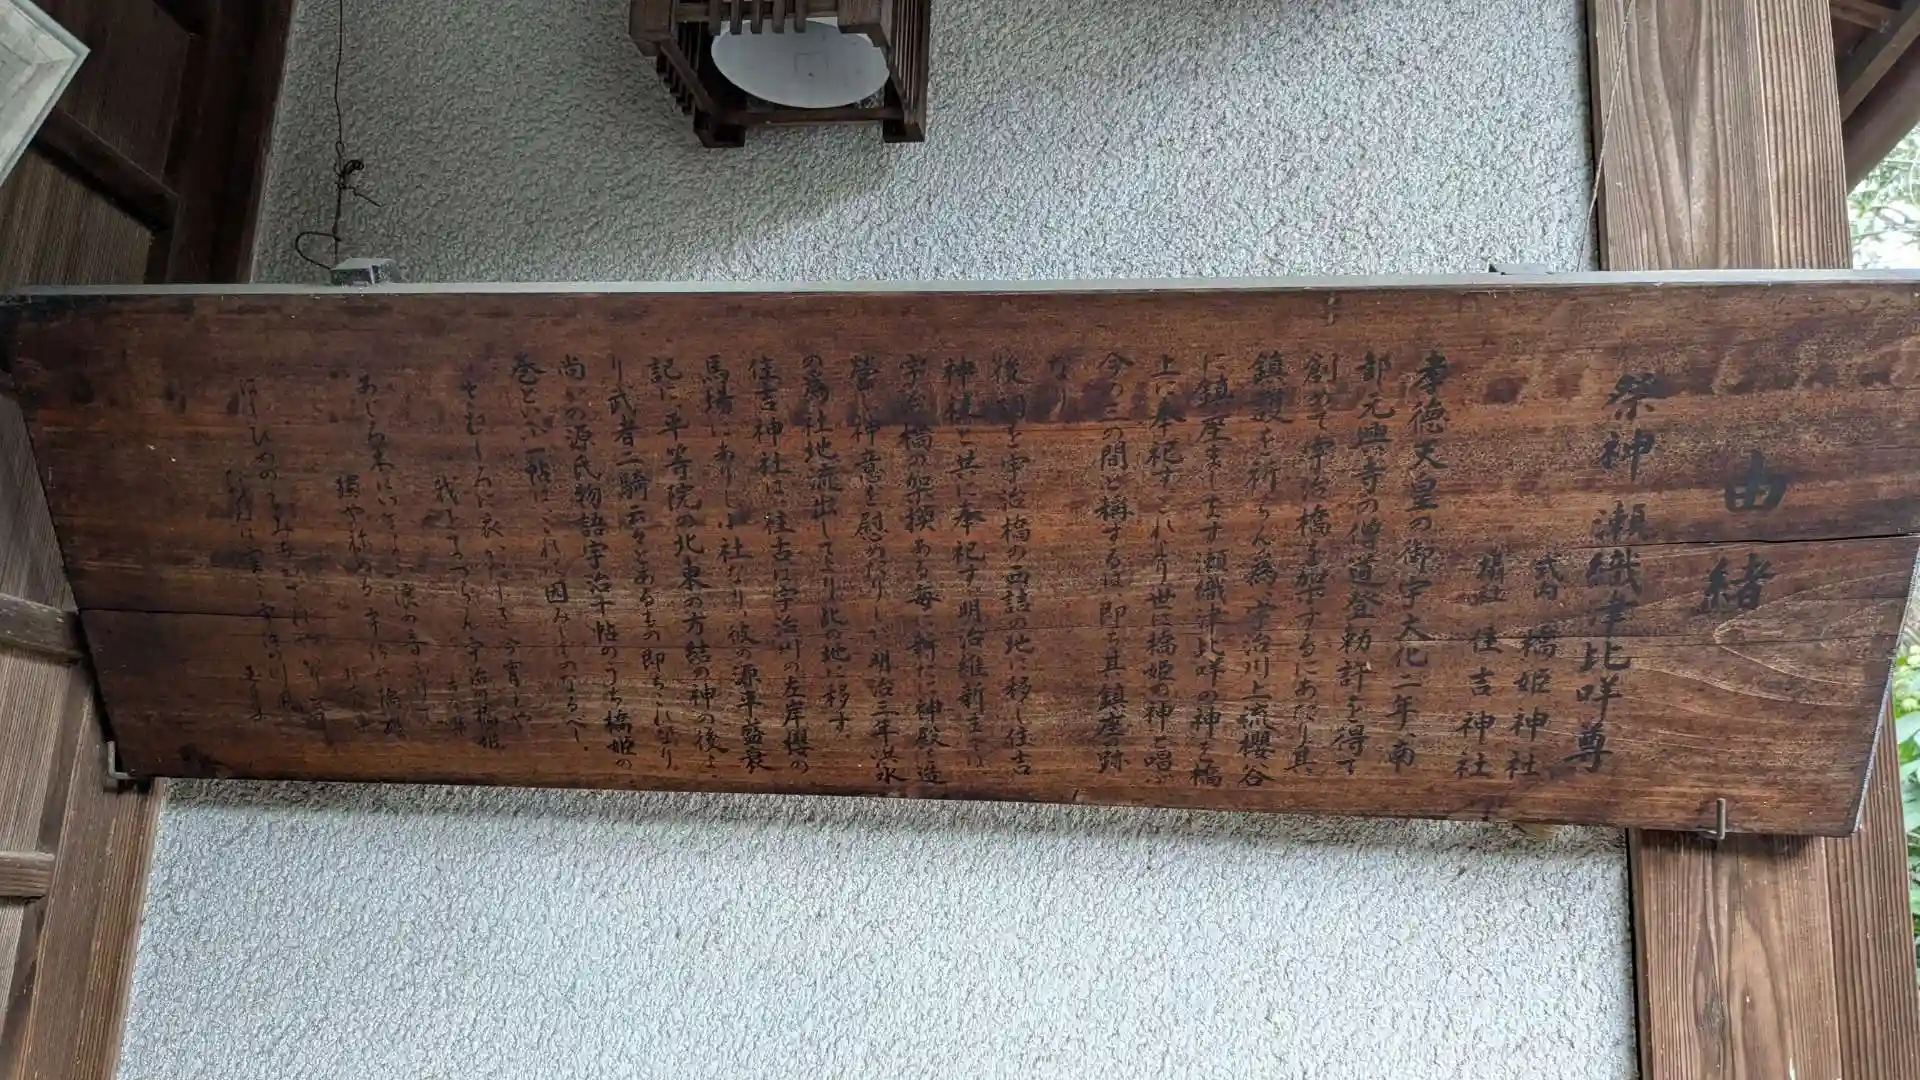 由緒
祭神 瀬織津比咩尊
式内 橋姫神社
摂社 住吉神社
孝徳天皇の御宇大化二年南
都元興寺の僧道登勅許を得て
創めて宇治橋を架するにあたり其
鎮護を祈らん為、宇治川上流櫻谷
に鎮座まします瀬織津比咩の神を橋
上に奉祀すこれより世に橋姫の神と唱ふ
今の三の間と稱するは即ち其鎮座の跡
なり
後祠を宇治橋の西詰の地に移し住吉
神社と共に奉祀す。明治維新までは
宇治橋の架換ある毎に新たに神殿を造
營し神意を慰めたりしが明治三年洪水
の為め社地流出してより此の地に移す
住吉神社は往古は宇治川の左岸櫻の
馬場にありし小社なり。彼の源平盛衰
記に平等院の北東の方結の神の後よ
り武者二騎云々とあるもの即ちこれなり。
尚かの源氏物語宇治十帖のうち橋姫の
巻といふ一帖は、これに因みしものなるべし。
さむしろに衣かたしき今宵もや
我をまつらん宇治の橋姫
あじろ木にいざよふ浪の音
獨や寝ぬる宇治の橋姫